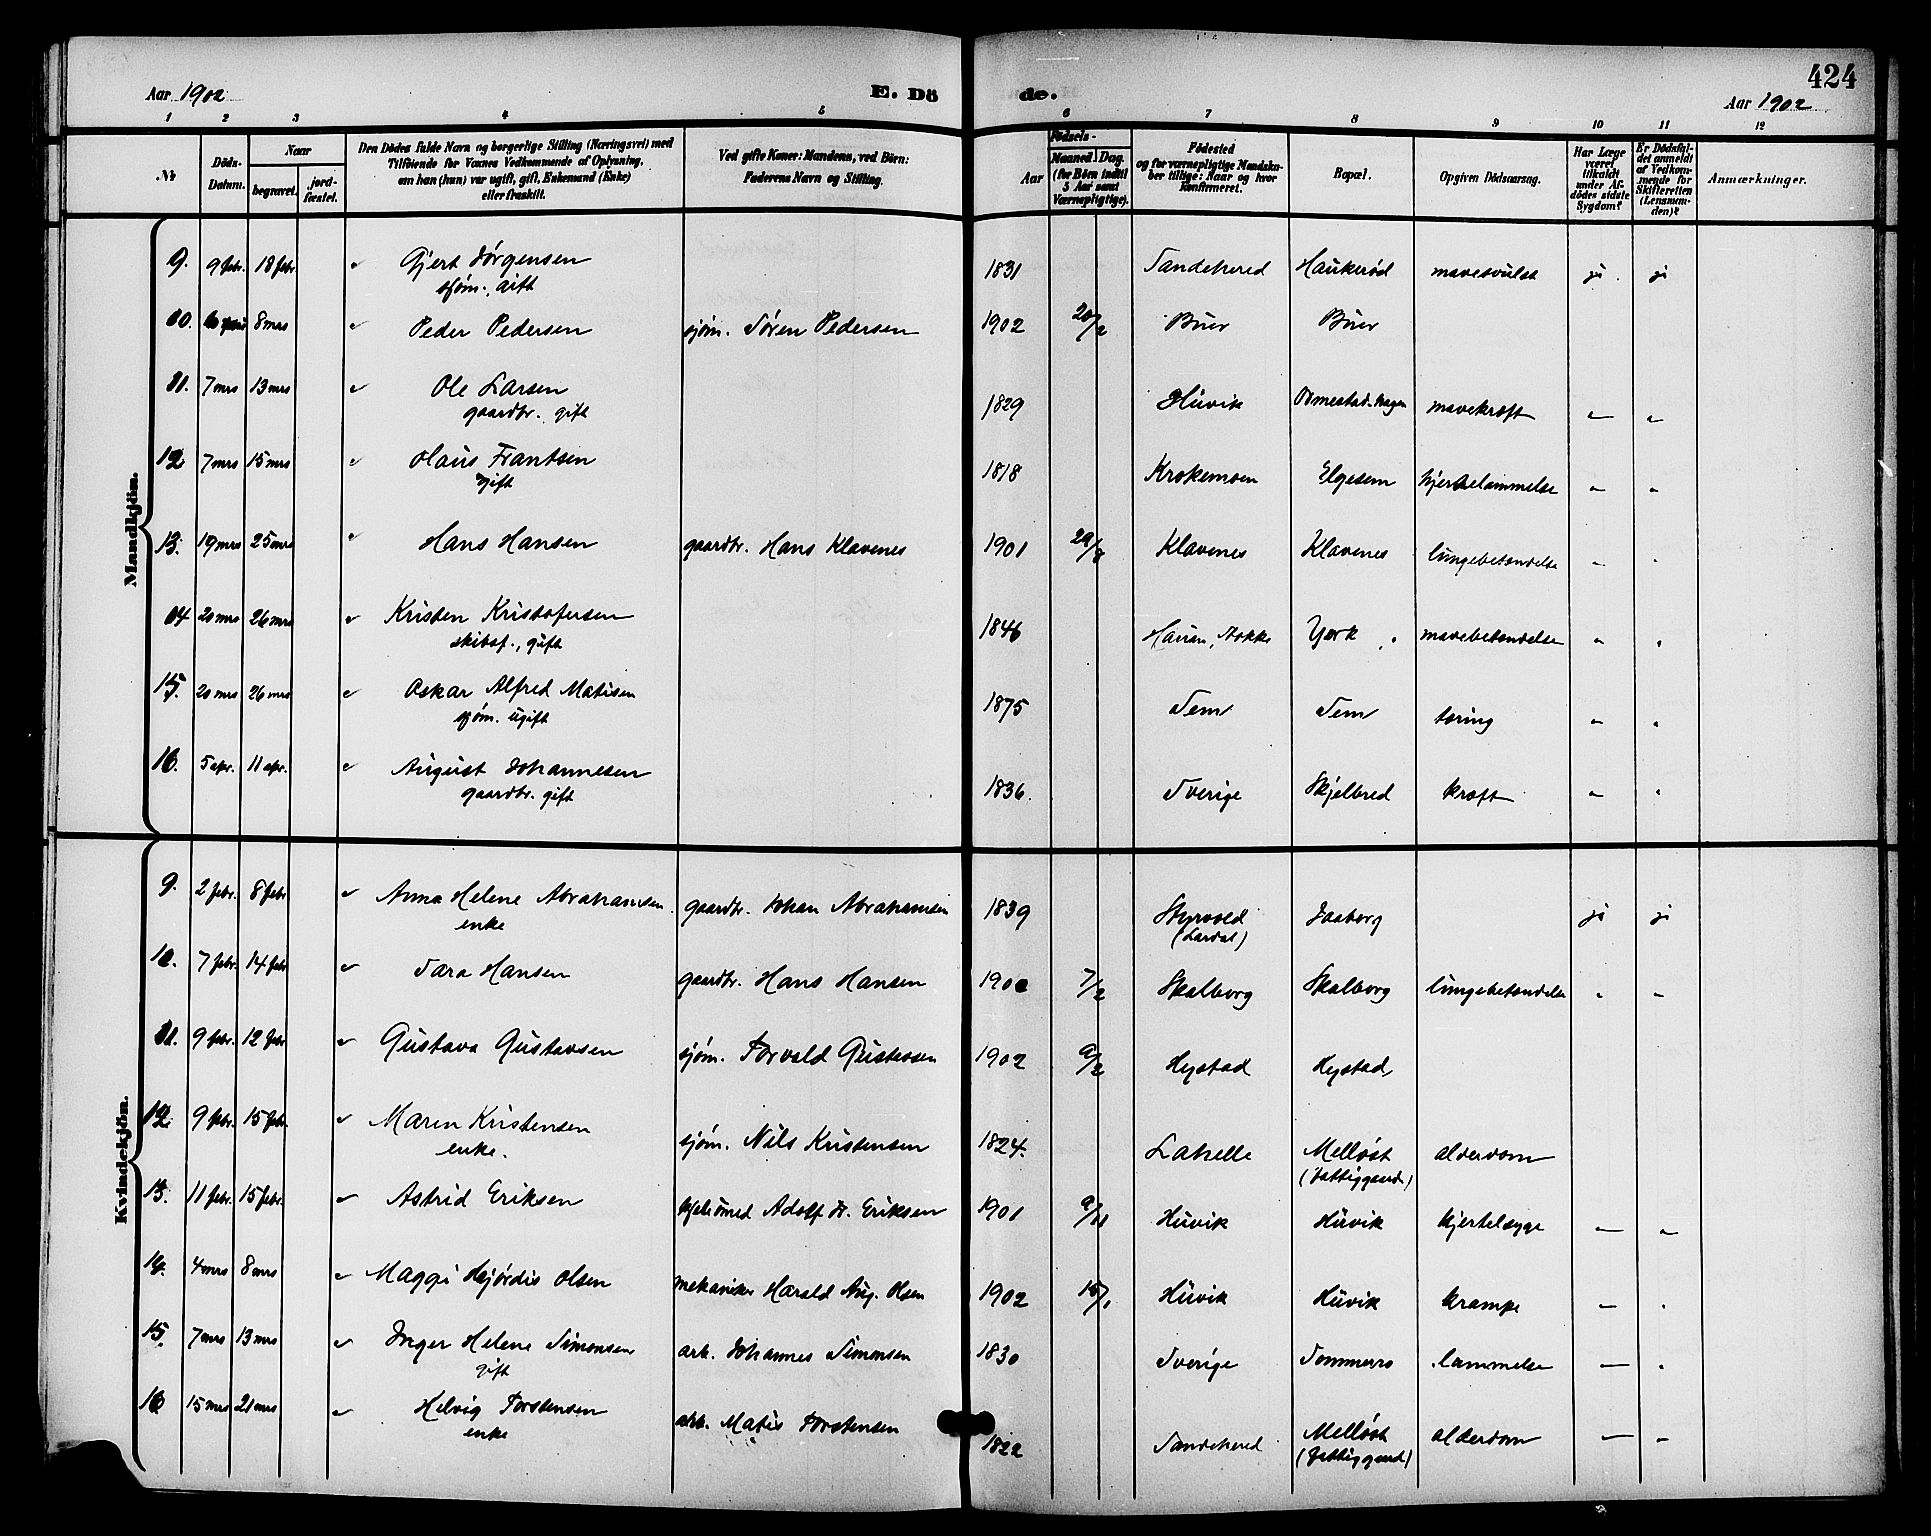 424
Aar 1902
E. Dö
de.
Aar 1902
1 2 3 4 5 6 7 8 9 10 11 12
№
Döds-Datum.
Naar
begravet.
jord-fæstet.
Den Dödes fulde Navn og borgerlige Stilling (Næringsvei) med
Tilföiende for Voxnes Vedkommende af Oplysning,
om han (hun) var ugift, gift, Enkemand (Enke)
eller fraskilt.
Ved gifte Koner: Mandens, ved Börn:
Faderens Navn og Stilling.
Födsels-
Aar
Maaned. Dag.
(for Börn indtil
5 Aar samt
Værnepligtige).
Födested
og for værnepligtige Mandskaber tillige: Naar og hvor
Konfirmeret.
Bopæl.
Opgiven Dödsaarsag.
Har Læge
været
tilkaldt
under Afdödes sidste
Sygdom?
Er Dödsfaldet anmeldt
af Vedkommende for
Skifteretten
(Lensmanden)?
Anmærkninger.
Mandkjön.
9. 9 febr. 18 febr. Gjert Jørgensen 1831 Sandeherred Haukerød mavesvulst ja ja
sjøm., gift
10. 8 mrs Peder Pedersen sjøm. Søren Pedersen 1902 20/2 Buer Buer
11. 7 mrs 13 mrs Ole Larsen 1829 Huvik Ormestad-hagen mavekræft " "
gaardbr. gift
12 7 mrs 15 mrs Olaus Frantsen 1818 Krokemoen Elgesem hjertelammelse " "
gift
13. 19 mrs 25 mrs Hans Hansen gaardbr. Hans Klavenes 1901 29/8 Klavenes Klavenes lungebetændelse " "
14 20 mrs 26 mrs Kristen Kristofersen 1846 Hauan, Stokke York mavebetændelse " "
skibsf., gift
15. 20 mrs 26 mrs Oskar Alfred Matisen 1875 Sem Sem tæring " "
sjøm. ugift
16. 5 apr. 11 apr. August Johannesen 1836. Sverige Skjelbred kræft " "
gaardbr. gift
Kvindekjön.
9. 2 febr. 8 febr Anna Helene Abrahamsen gaardbr. Johan Abrahamsen 1839 Styrvold Faaborg ja ja
enke (Lardal)
10. 7 febr. 14 febr Sara Hansen gaardbr. Hans Hansen 1900 7/2 Skalborg Skalborg lungebetændelse " "
11. 9 febr. 12 febr Gustava Gustavsen sjøm. Torvald Gustavsen 1902 9/2 Hystad Hystad
12. 9 febr. 15 febr. Maren Kristensen sjøm. Nils Kristensen 1824. Lahelle Melløst alderdom
enke. (Fattiggaard)
13. 11 febr. 15 febr. Astrid Eriksen Adolf Fr. Eriksen 1901 9/11 Huvik Huvik kjertelsyge " "
14. 4 mrs 8 mrs Maggi Hjørdis Olsen mekaniker Harald Aug. Olsen 1902 15/1 Huvik Huvik krampe " "
15. 7 mrs 13 mrs Inger Helene Simonsen arb. Johannes Simonsen 1830 Sverige lammelse " "
gift
16 15 mrs 21 mrs Helvig Torstensen arb. Matis Torstensen 1822 Sandeherred Melløst alderdom " "
enke (Fattiggaard)